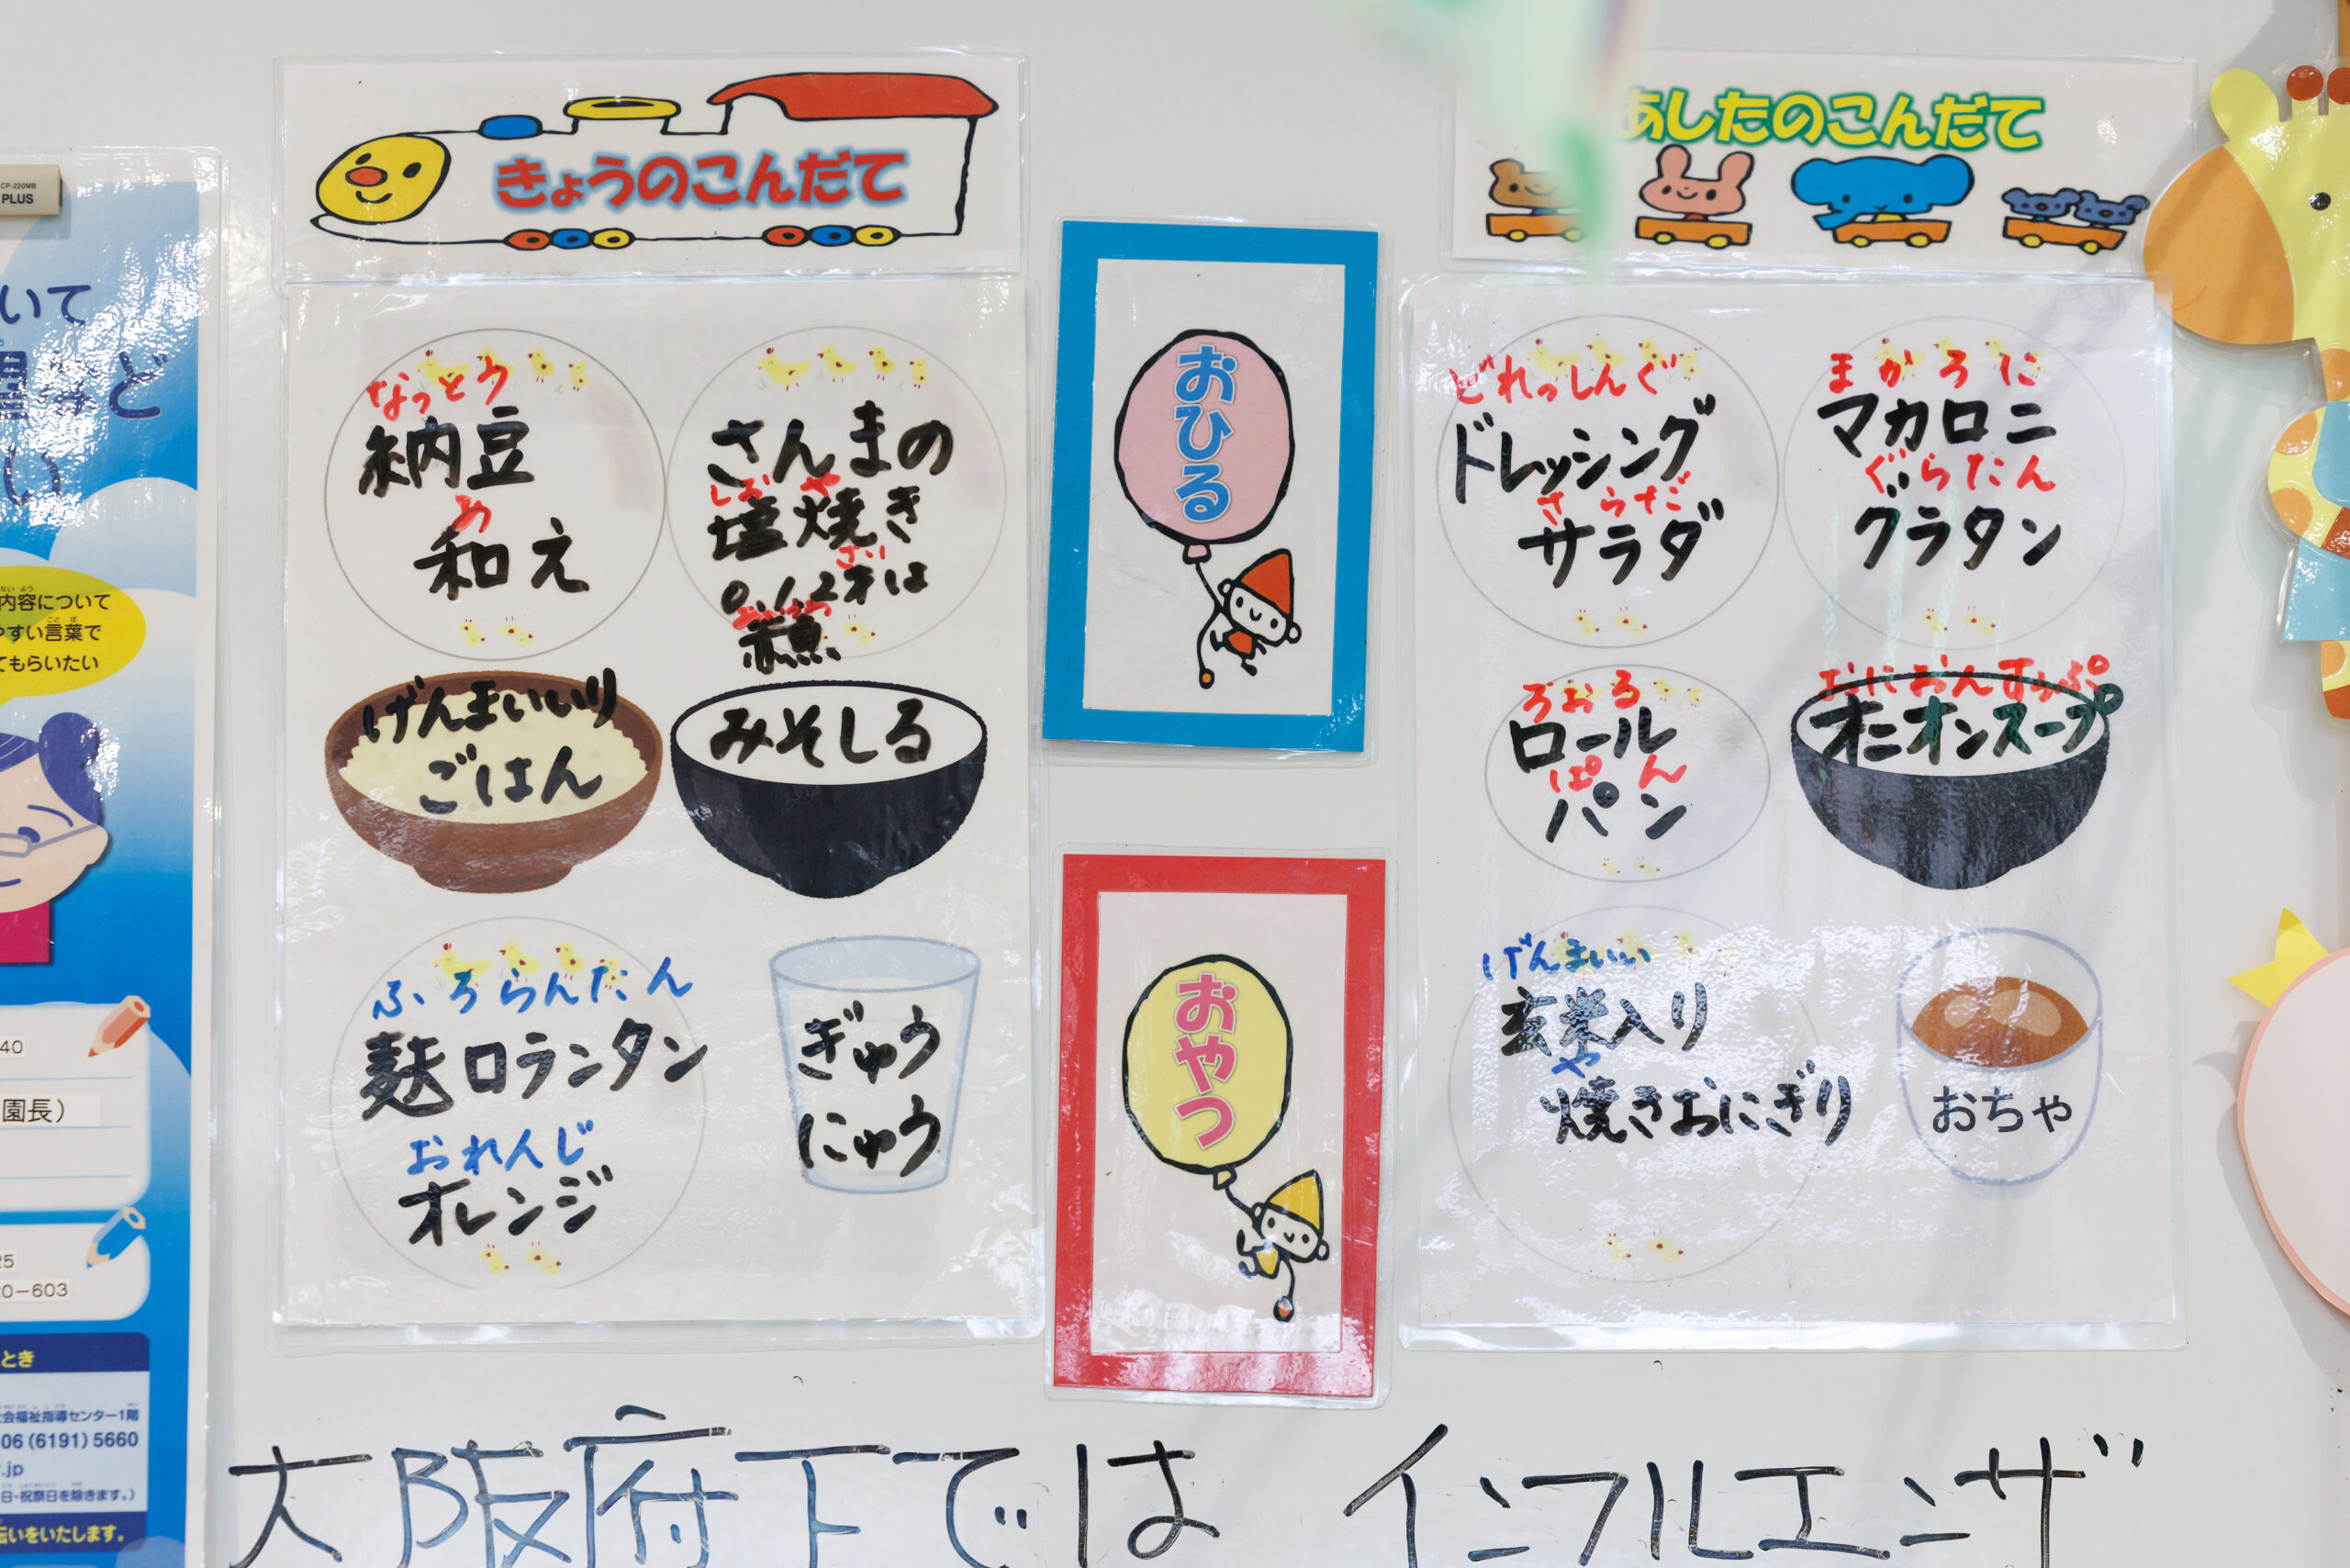 きょうのこんだて
なっとう
納豆
あ
和え
さんまの
しお や
塩焼き
さい
0.1.2才は
赤魚
げんまいいり
ごはん
みそしる
ふろらんたん
麩ロランタン
おれんじ
オレンジ
ぎゅう
にゅう
おひる
おやつ
あしたのこんだて
どれっしんぐ
ドレッシング
さらだ
サラダ
まかろに
マカロニ
ぐらたん
グラタン
ろおる
ロール
ぱん
パン
オニオンスープ
げんまいい
玄米入り
や
焼きおにぎり
おちゃ
大阪府下では インフルエンザ
CP-220MB
PLUS
いて
など
い
ないよう
内容について
ことば
やすい言葉で
てもらいたい
40
園長）
25
0−603
とき
会福祉指導センター1階
06（6191）5660
.jp
日・祝祭日を除きます。）
伝いをいたします。